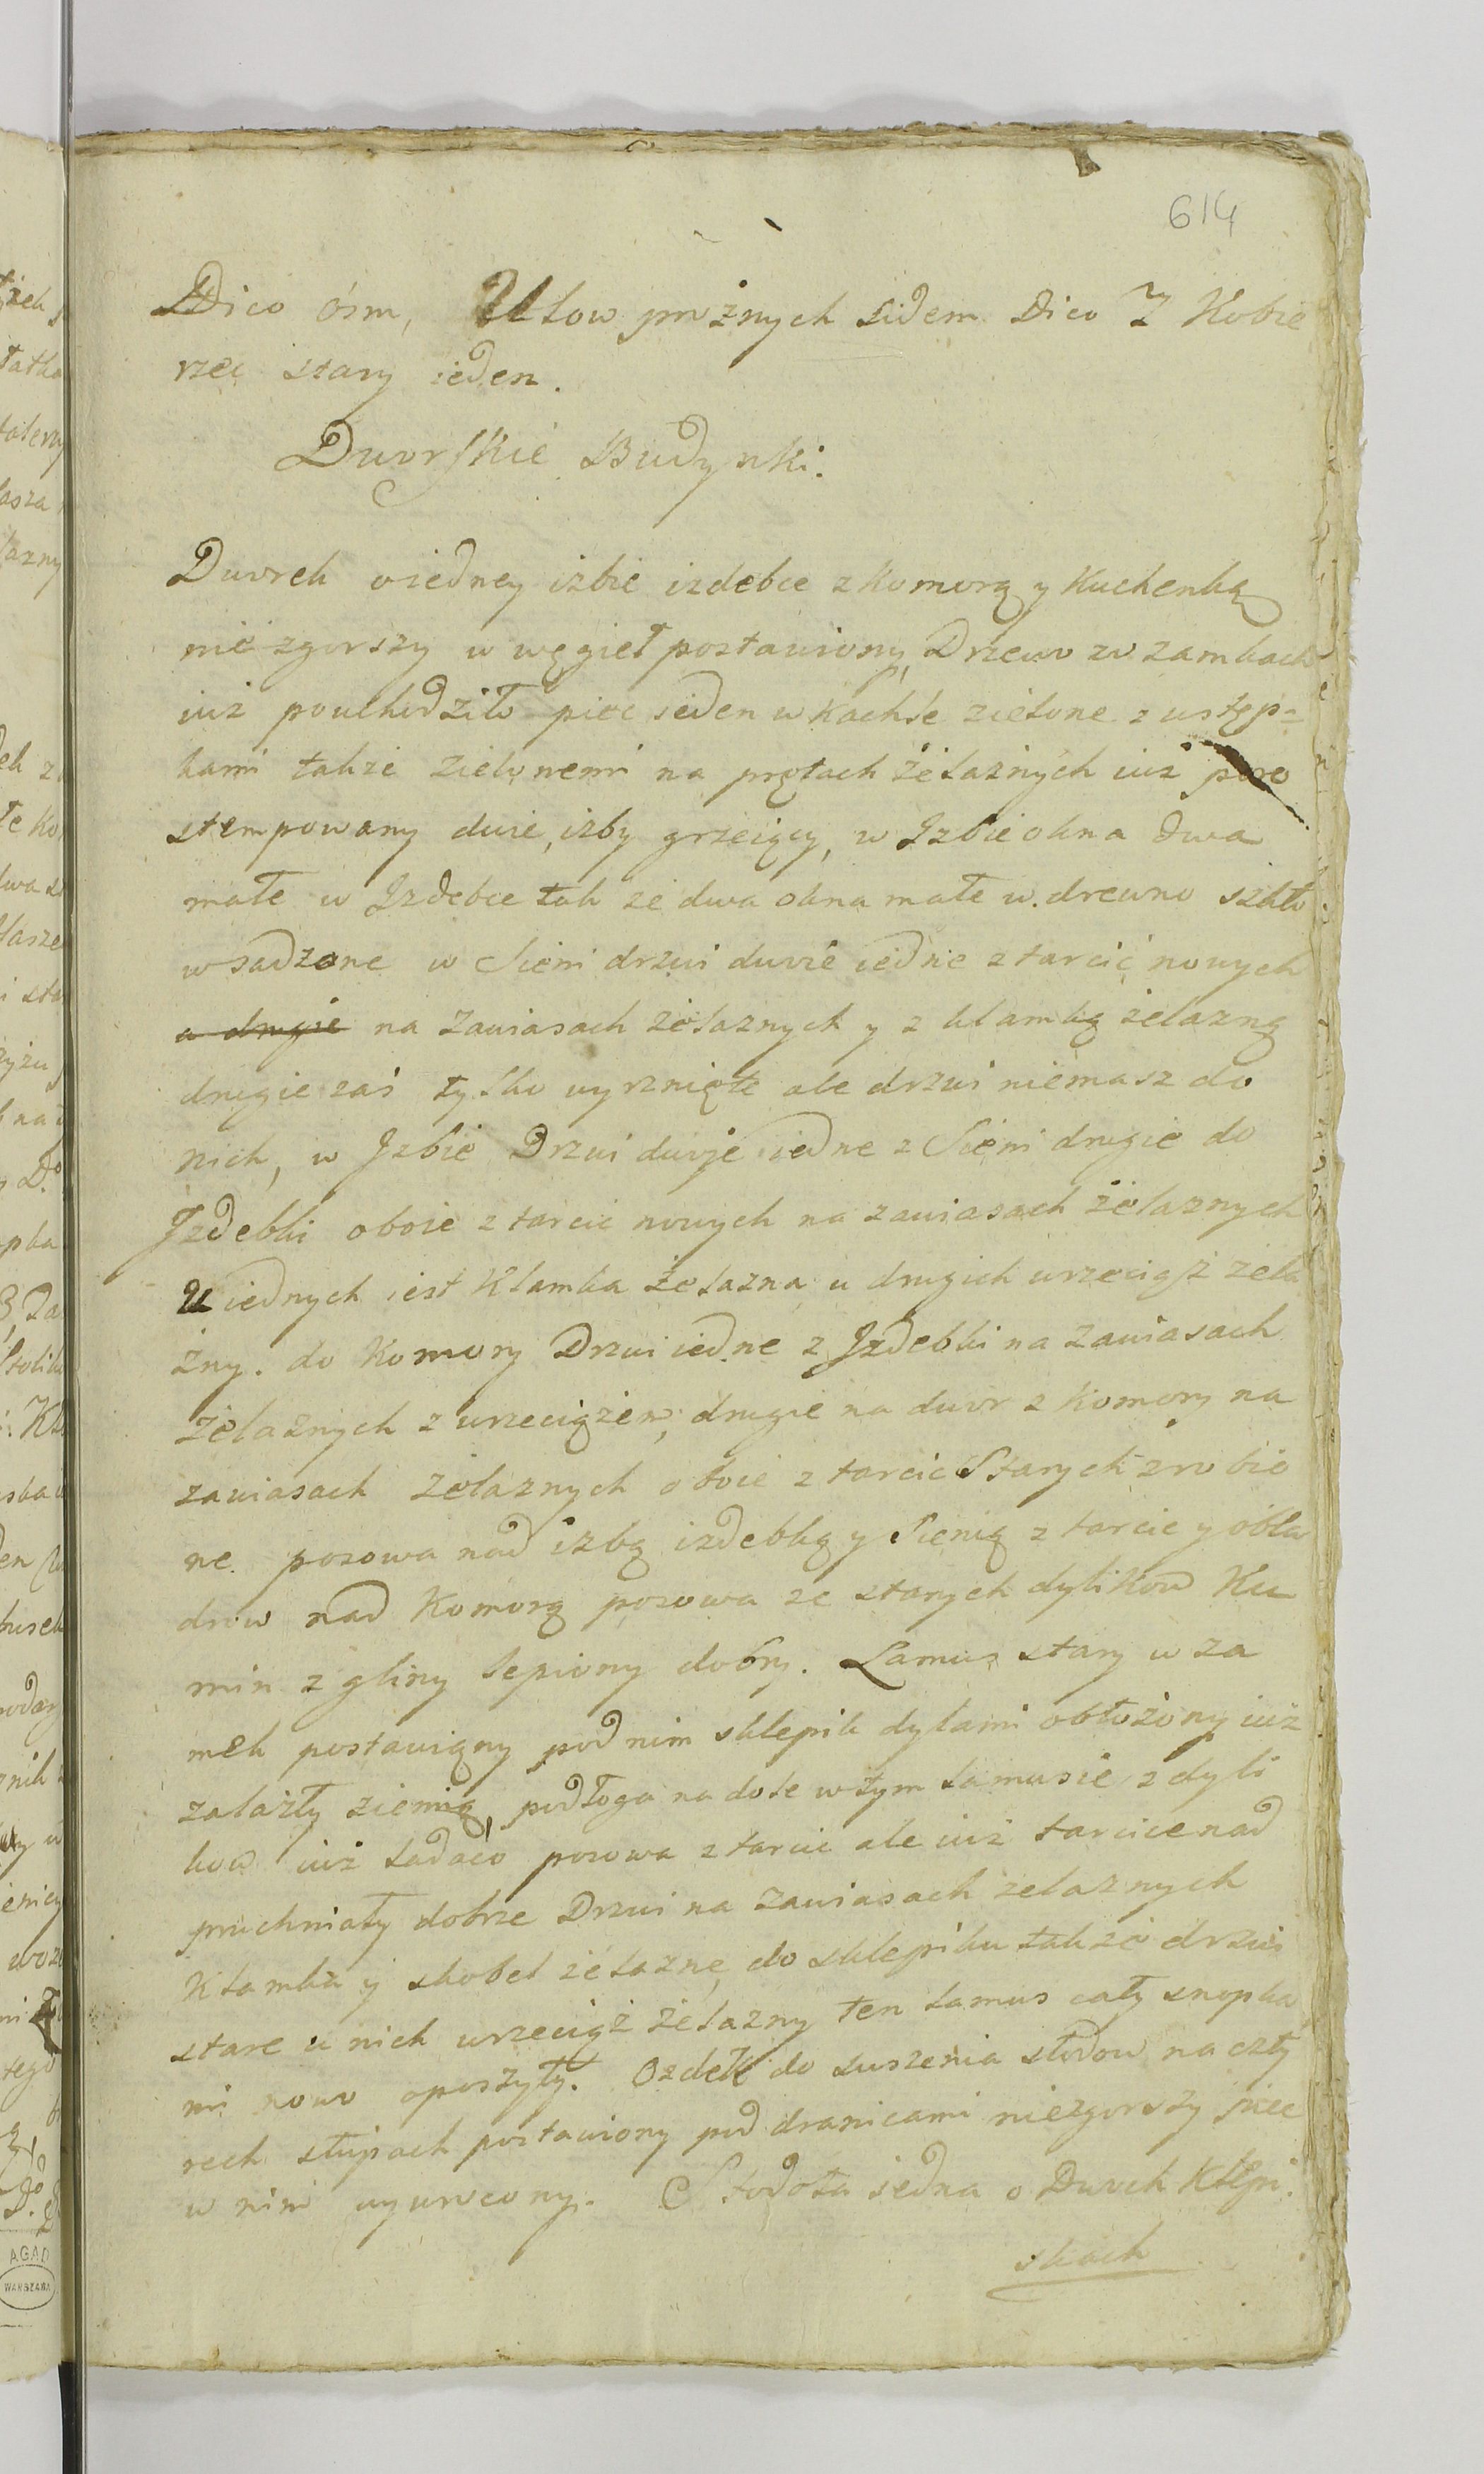 614
Dico ósm, Ulow prożnych sidem Dico 7 Kobie
rzec stary ieden.
Dworskie Budynki.
Dworek o iedney izbie izdebce z komorą y kuchenką
nie zgorszy w węgieł postawiony, Drzewo w zambkach
iuż pouchodziło piec ieden w kachle zielone z ustęp=
kami takze zielonemi na prętach żelaznych iuż poro
stempowany dwie, izby grzeiący, w Jzbie okna dwa
małe w Jzdebce tak ze dwa okna małe w drewno szkło
wsadzone w Sieni drzwi dwoie iedne z tarcic nowych
a drugie na zawiasach żelaznych y z klamką żelazną
drugie zaś tylko wyrznięte ale drzwi niemasz do
nich, w Jzbie Drzwi dwoje iedne z Sieni drugie do
Jzdebki oboie z tarcic nowych na zawiasach żelaznych
U iednych iest Klamka żelazna u drugich wrzeciąż żela
zny. do Komory Drzwi iedne z Jzdebki na zawiasach
żelaznych z wrzeciązem, drugie na dwor z komory na
zawiasach żelaznych oboie z tarcic Starych zrobio
ne. posowa nad izbą izdebką y Sienią z tarcic y obla
drow nad Komorą posowa ze starych dylikow Ku
min z gliny lepiony dobry. Lamus stary w za
mek postawiąny pod nim sklepik dylami obłożony iuż
zalazły ziemią, podłoga na dole w tym lamusie z dyli
kow iuż ladaco posowa z tarcic ale iuż tarcice nad
pruchniały dobrze Drzwi na zawiasach zelaznych
Klamka y skobel żelazne, do sklepiku takze drzwi
stare u nich wrzeciąż żelazny ten lamus cały snopka
mi nowo oposzyty. Ozdek do suszenia słodow na czty
rech słupach postawiony pod dranicami niezgorszy piec
w nim wywrocony. Stodoła iedna o Dwoch Klepi.
skach
AGAD
WARSZAWA